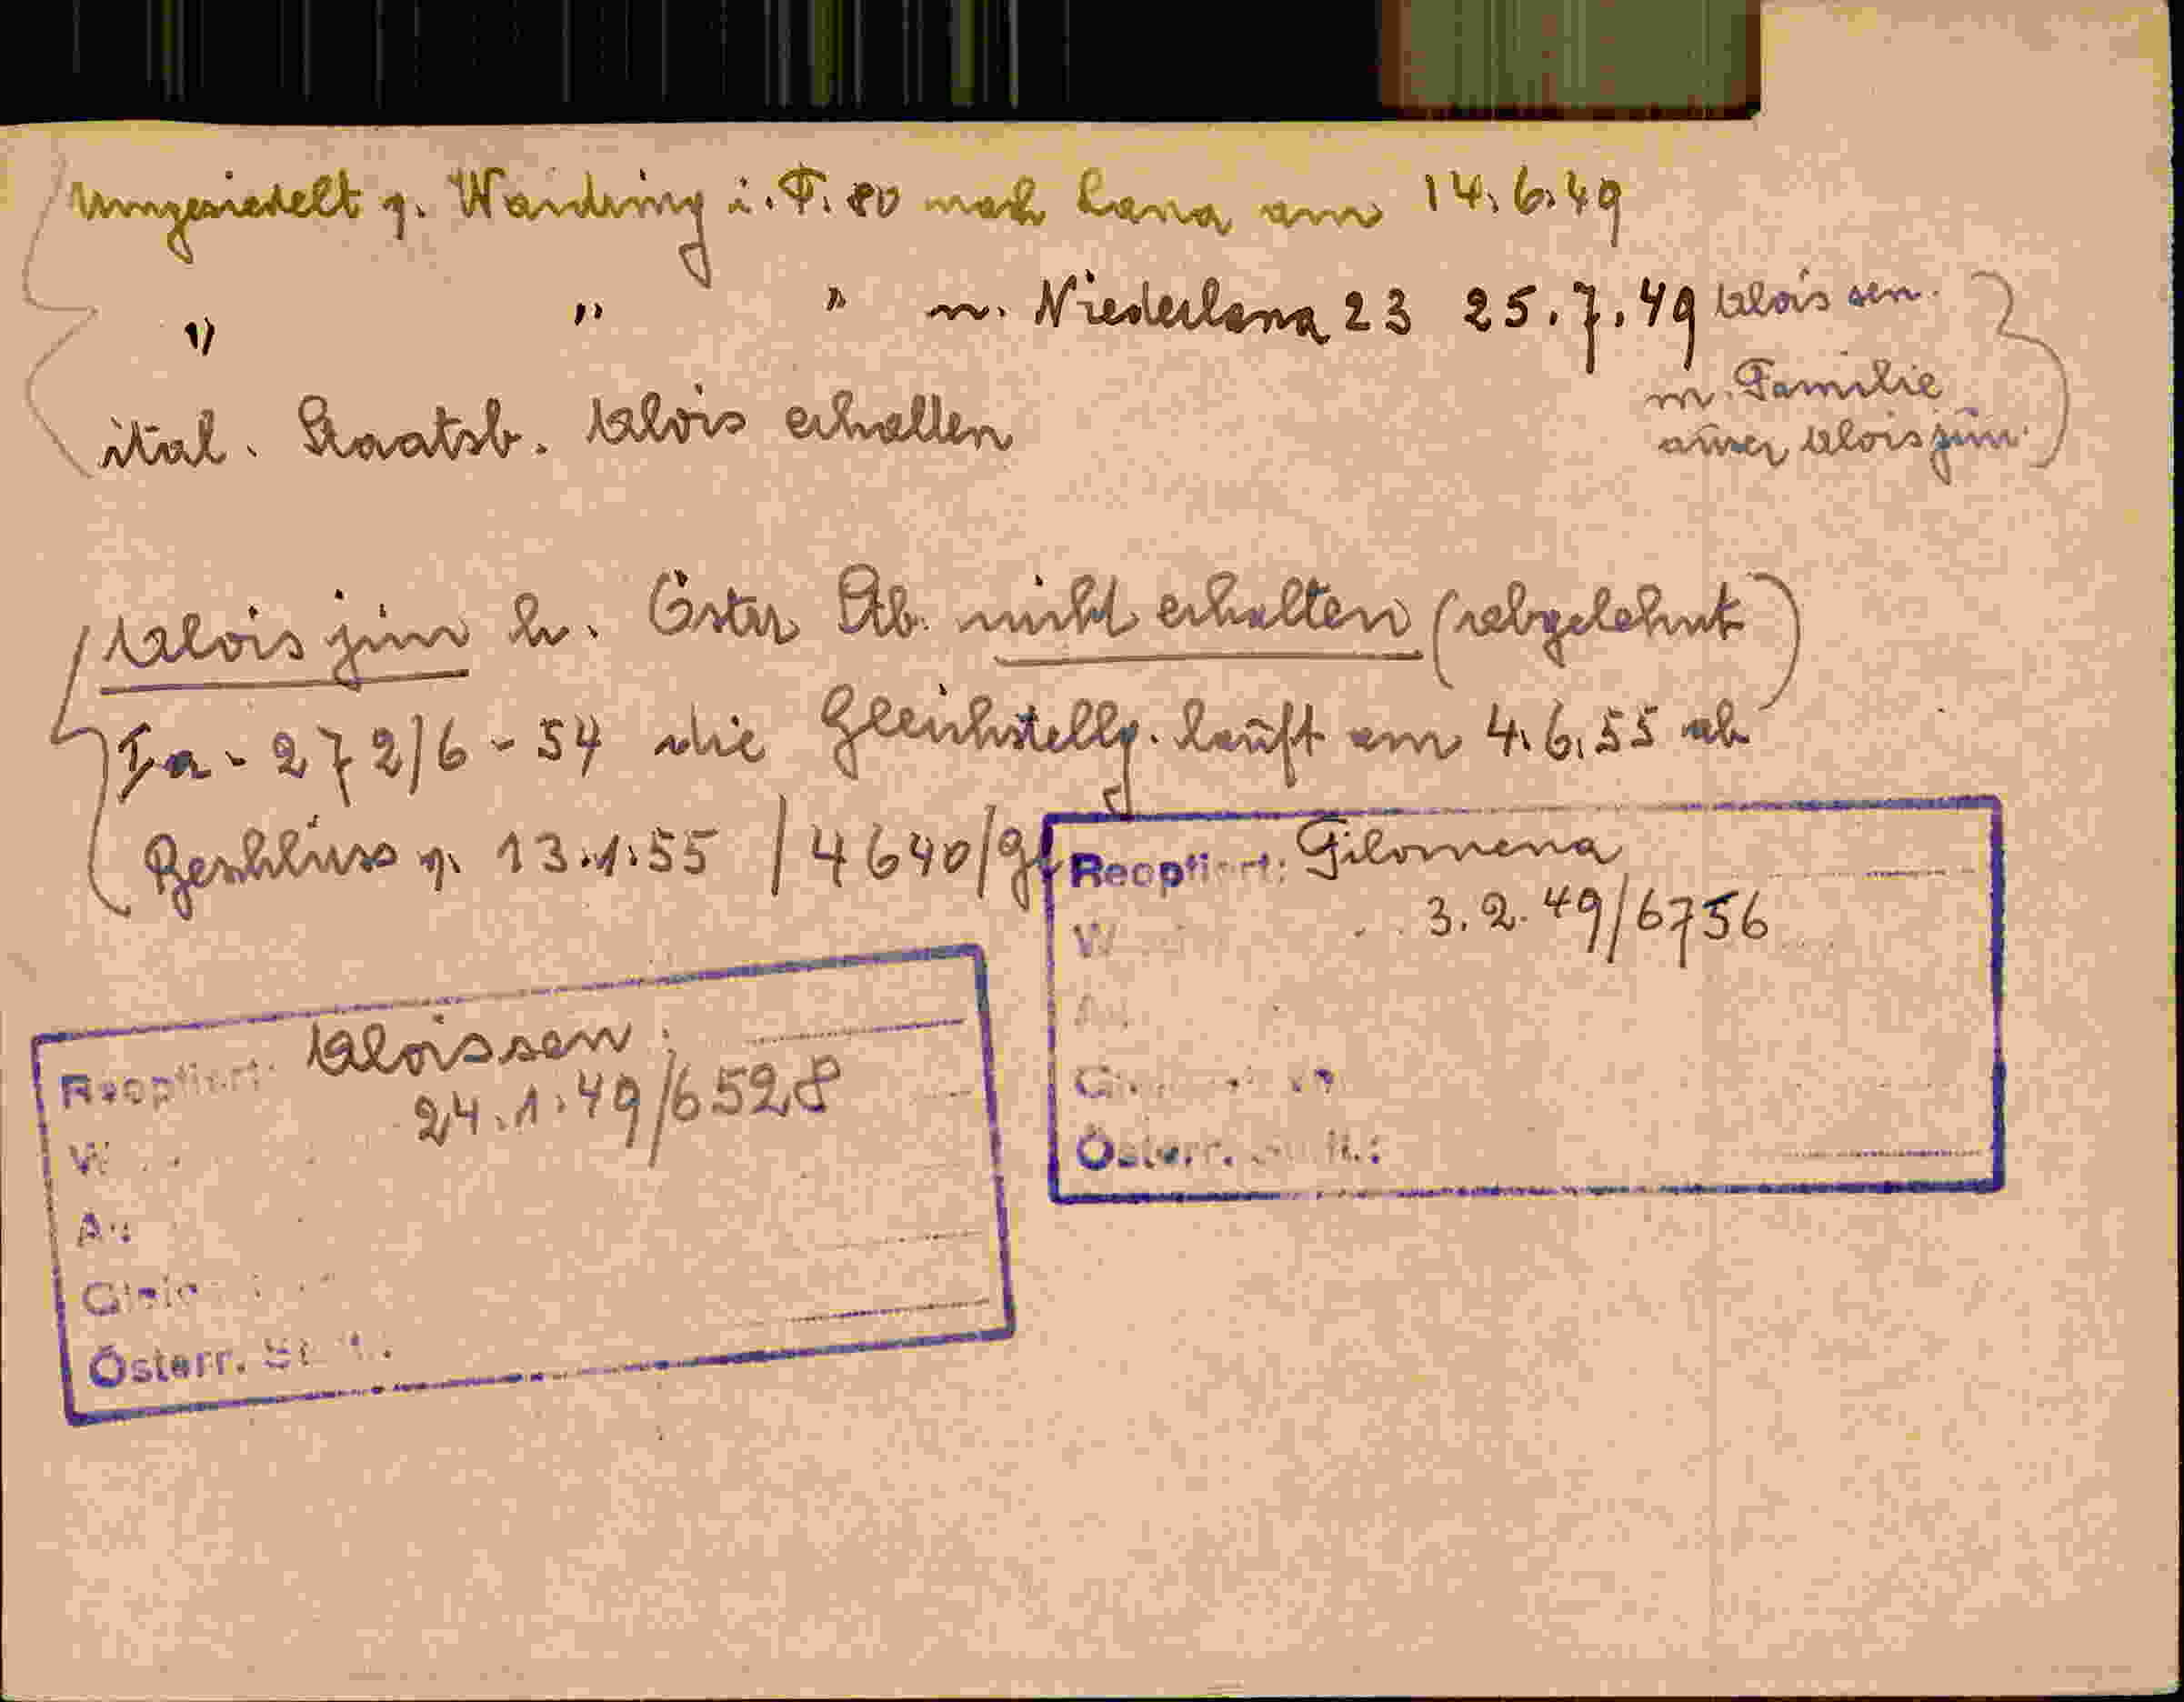 Umgesiedelt v. Wandring i. T. 80 nach Lana am 14.6.49
" " " n. Niederlana 23 25.7.49 Alois sen.
m. Familie
ausser Alois jun.
ital. Staatsb. Alois erhalten
Alois jun h. Öster Stb. nicht erhalten (abgelehnt)
Ia - 272/6 - 54 die Gleichstellg. läuft am 4.6.55 ab
Beschluss v. 13.1.55 / 4640/Gl
Reoptiert: Filomena
3.2.49/6756
Österr.
Reoptiert: Alois sen.
24.1.49/6528
Österr.